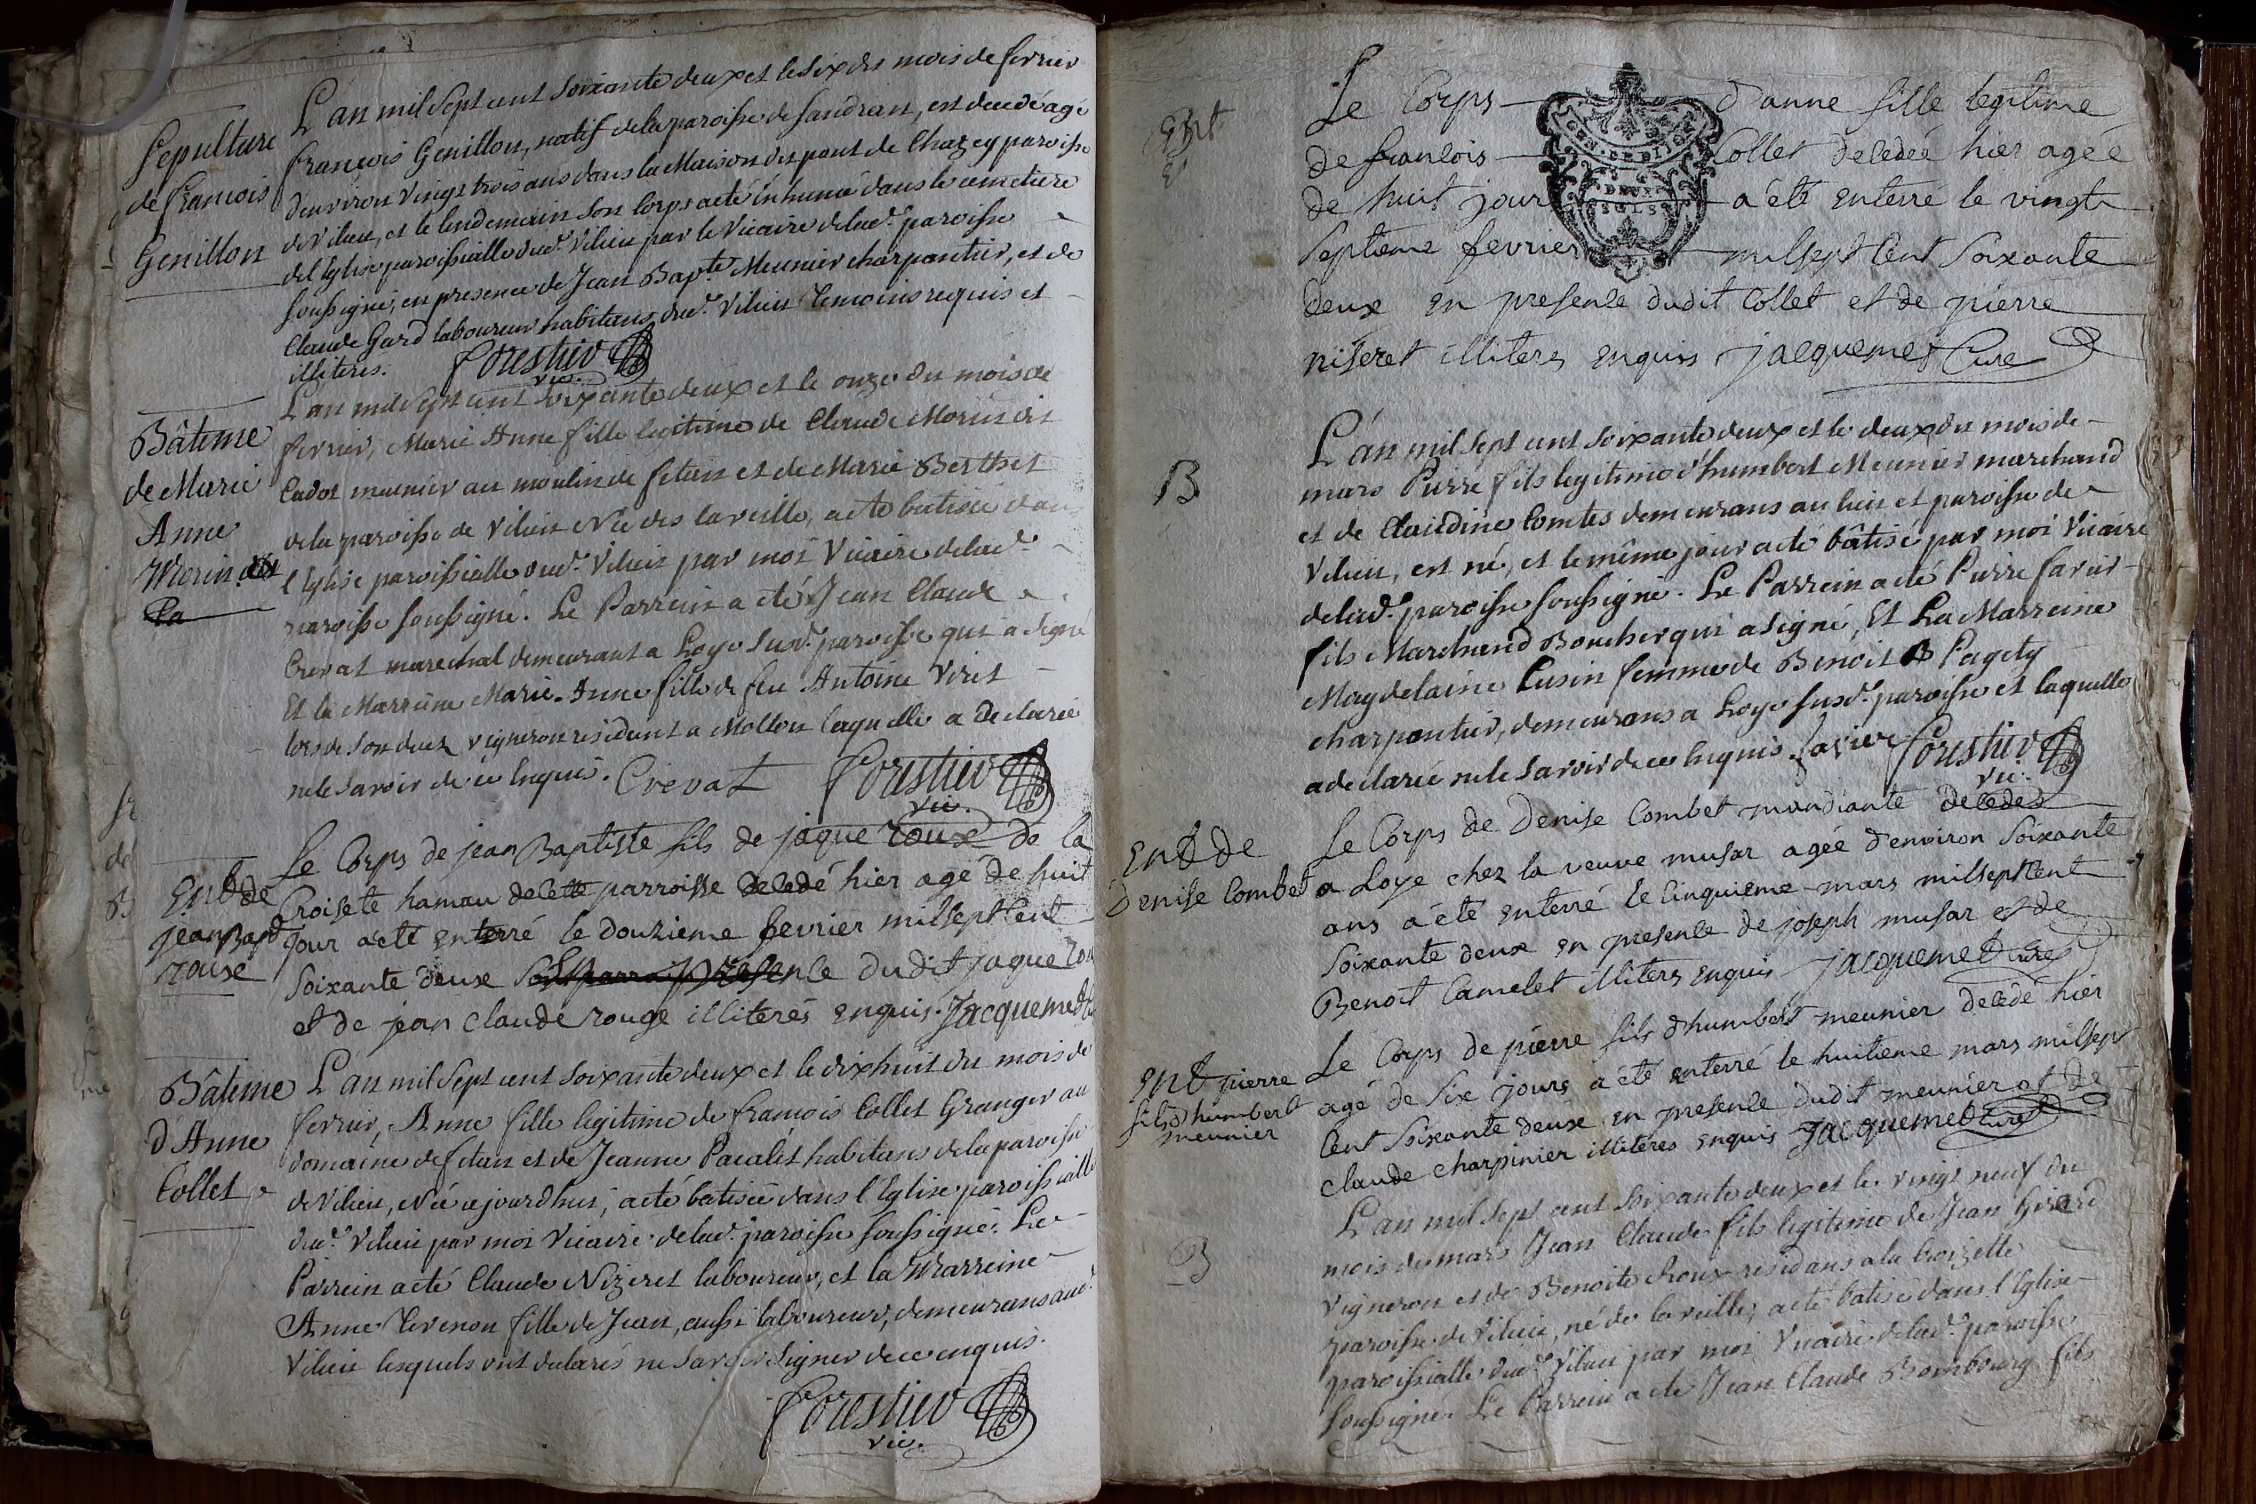 Sepulture
de francois
Genillon
L'an mil sept cent soixante deux et le six du mois de fevrier
francois Genillon, natif de la paroisse de Sandran, est decedé agé
d'environ vingt trois ans dans la Maison du pont de Chazey paroisse
de Vilieu, et le lendemain son Corps a eté inhumé dans le cemetiere
de l'Eglise paroissialle dud.t Vilieu par le Vicaire de lad.e paroisse
soussigné, en presence de Jean Bap.te Meunier charpentier, et de
Claude Gard laboureur habitans dud.t Vilieu temoins requis et
illiteres. Forestier
vic.
Bâteme
de Marie
Anne
Morin dit
Ca
L'an mil sept cent soixante deux et le onze du mois de
fevrier, Marie Anne fille legitime de Claude Morin dit
Cadot munier au moulin de fetan et de Marie Berthet
de la paroisse de Vilieu Née dès la veille, a eté batisée dans
l'Eglise paroissialle dud.t Vilieu par moi Vicaire de lad.e
paroisse soussigné. Le Parrein a eté Jean Claude
Crevat marechal demeurant a Loye susd.e paroisse qui a signé
Et la Marreine Marie-Anne fille de feu Antoine Viret
lors de son decez vigneron residant a Mollon laquelle a declarée
ne le savoir de ce Enquis. Crevat Forestier
vic.
Ent de
jean Bapt
rouse
Le Corps de jean Baptiste fils de jaque roux de la
Croisete hamau de cette parroisse decedé hier agé de huit
jour a eté enterré le douzieme fevrier mil sept Cent
Soixante deux presence dudit jaque
et de jean claude rouge illiterés enquis. Jacquemet
Bâteme
d'Anne
Collet
L'an mil sept cent soixante deux et le dixhuit du mois de
fevrier, Anne fille legitime de francois Collet Granger au
domaine de fetan et de Jeanne Pacalet habitans de la paroisse
de Vilieu, Née cejourdhui, a eté batisée dans l'Eglise paroissialle
dud.t Vilieu par moi Vicaire de lad.e paroisse soussigné. Le
Parrein a eté Claude Nizeret laboureur, et la Marreine
Anne Tevenon fille de Jean, aussi laboureur, demeurans aud.t
Vilieu lesquels ont declarés ne savoir signer de ce enquis.
Forestier
vic.
Ent
Le Corps d'anne fille legitime
de francois Collet decedeé hier agée
de huit jour a été enterré le vingt
septieme fevrier mil sept Cent Soixante
deux en presence dudit Collet et de pierre
niseret illiters enquis Jacquemet Curé
GEN. DE DIJON
DEUX
SOLS
B
L'an mil sept cent soixante deux et le deux du mois de
mars Pierre fils legitime d'humbert Meunier marchand
et de Claudine Comtes demeurans au lieu et paroisse de
Vilieu, est né, et le même jour a eté bâtisé par moi Vicaire
de lad.e paroisse soussigné. Le Parrein a eté Pierre favier
fils Marchand Boucher qui a signé, Et La Marreine
Magdelaine Cusin femme de Benoit Pagety
charpentier, demeurans a Loye susd.e paroisse et laquelle
a declarée ne le savoir de ce Enquis. favier Forestier
vic.
Ent de
Denise Combet
Le Corps de Denise Combet mandiante decedeé
a Loye chez la veuve musar agée d'environ soixante
ans a été enterré le Cinquieme mars mil sept Cent
Soixante deux en presence de joseph musar et de
Benoit Camelet illiters enquis Jacquemet Curé
Ent pierre
fils d'humbert
meunier
Le Corps de pierre fils d'humbert meunier decedé hier
agé de six jours a été enterré le huitieme mars mil sept
Cent soixante deux en presence dudit meunier et de
claude charpinier illiteres enquis Jacquemet Curé
B
L'an mil sept cent soixante deux et le vingt neuf du
mois de mars Jean Claude fils legitime de Jean Girard
vigneron et de Benoite Roux residans a la Croizette
paroisse de Vilieu, né de la veille, a eté batisé dans l'Eglise
paroissialle dud.t Vilieu par moi Vicaire de lad.e paroisse
soussigné. Le Parrein a eté Jean Claude Bombourg fils